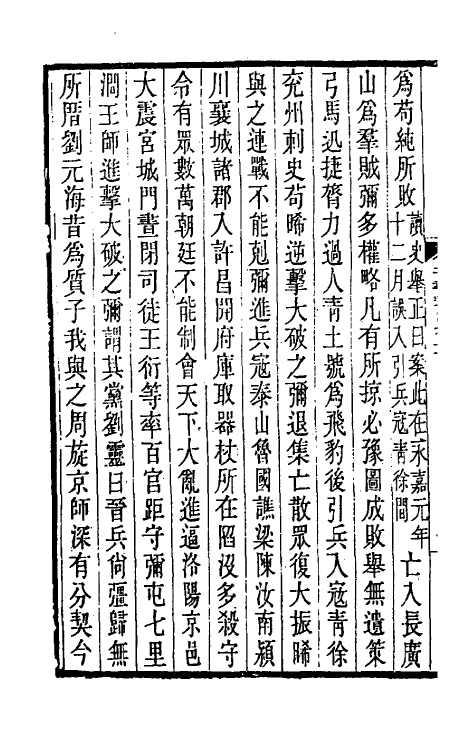 爲苟純所敗讀史舉正曰案此在永嘉元年十二月誤入引兵寇靑徐間亡入長廣
山爲羣賊彌多權略凡有所掠必豫圖成敗舉無遺策
弓馬迅捷膂力過人靑土號爲飛豹後引兵入寇靑徐
兖州刺史苟晞逆擊大破之彌退集亡散眾復大振晞
與之連戰不能剋彌進兵寇泰山魯國譙梁陳汝南潁
川襄城諸郡入許昌開府庫取器杖所在陷沒多殺守
令有眾數萬朝廷不能制會天下大亂進逼洛陽京邑
大震宮城門晝閉司徒王衍等率百官距守彌屯七里
澗王師進擊大破之彌謂其黨劉靈曰晉兵尙彊歸無
所厝劉元海昔爲質子我與之周旋京師深有分契今